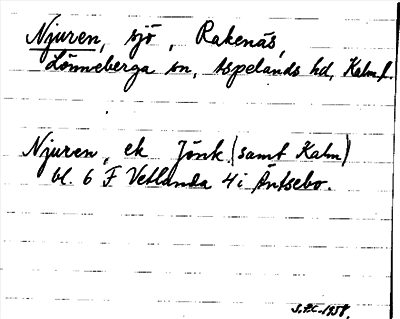 Njuren, sjö, Rakenäs,
Lönneberga sn, Aspelands hd, Kalm.l.
Njuren, ek Jönk. (samt Kalm)
bl. 6 F Vetlanda 4 i Äntsebo.
1958.